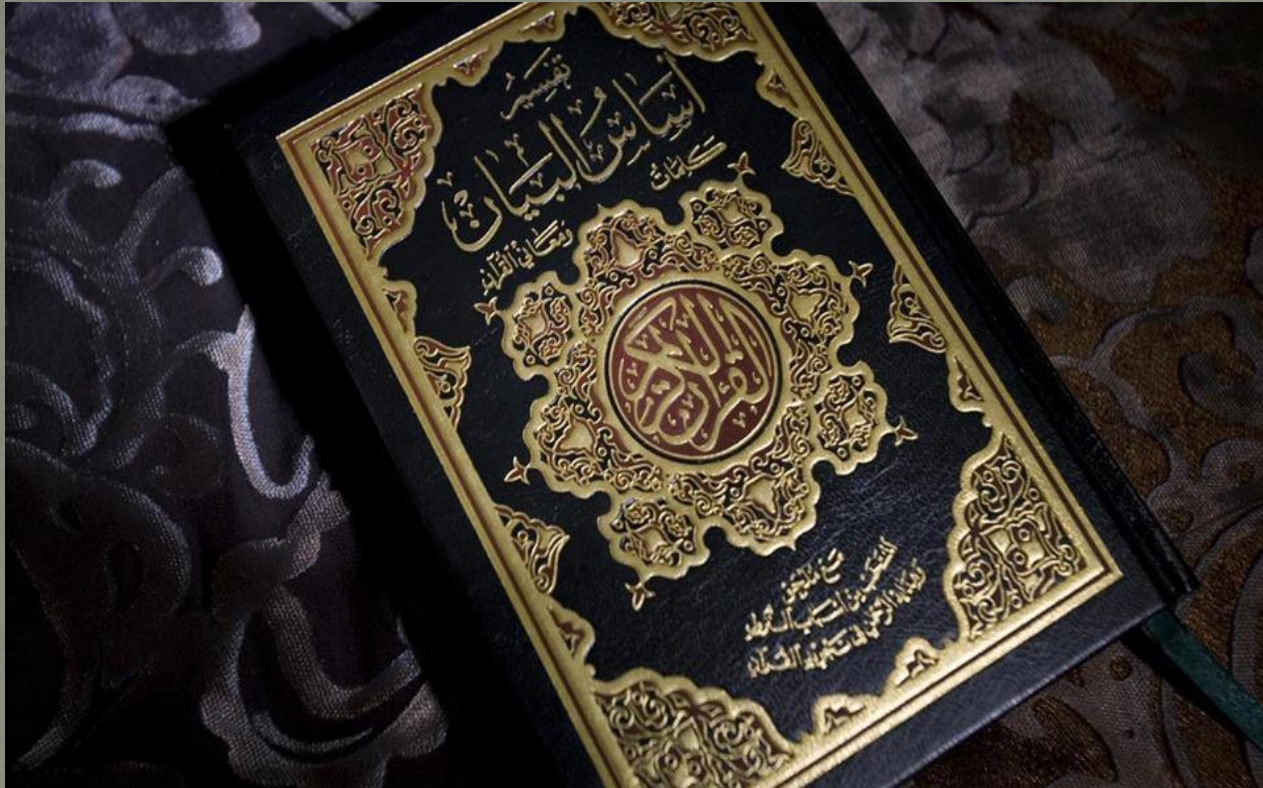 تَفسِيرُ
أَسَاسُ البَيَان
كَلِمَات
وَمَعَاني القُرآن
القرآن الكريم
مَعَ مُلْحَقَي
المنتخب من أسباب النزول
وهداية الرحمن في تجويد القرآن